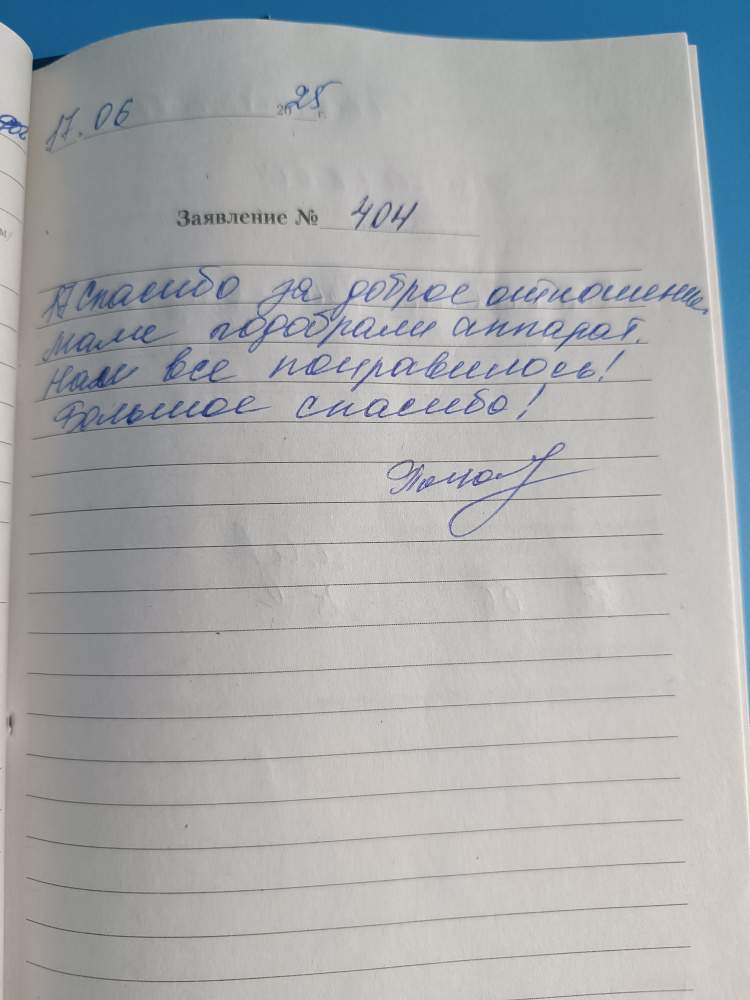 17.06 2025 г.
Заявление № 404
Спасибо за доброе отношение.
Маме подобрали аппарат.
Нам все понравилось!
Большое спасибо!